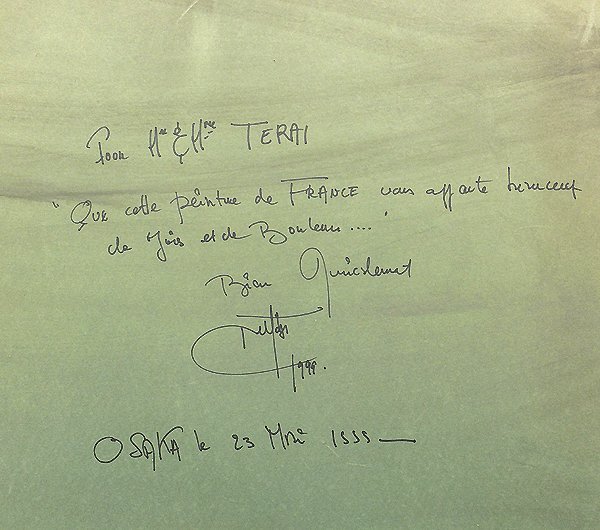 Pour Mr & Mme TERAI
"Que cette peinture de FRANCE vous apporte beaucoup
de Joie et de Bonheur...."
Bien Amicalement
1999.
OSAKA le 23 Mai 1999